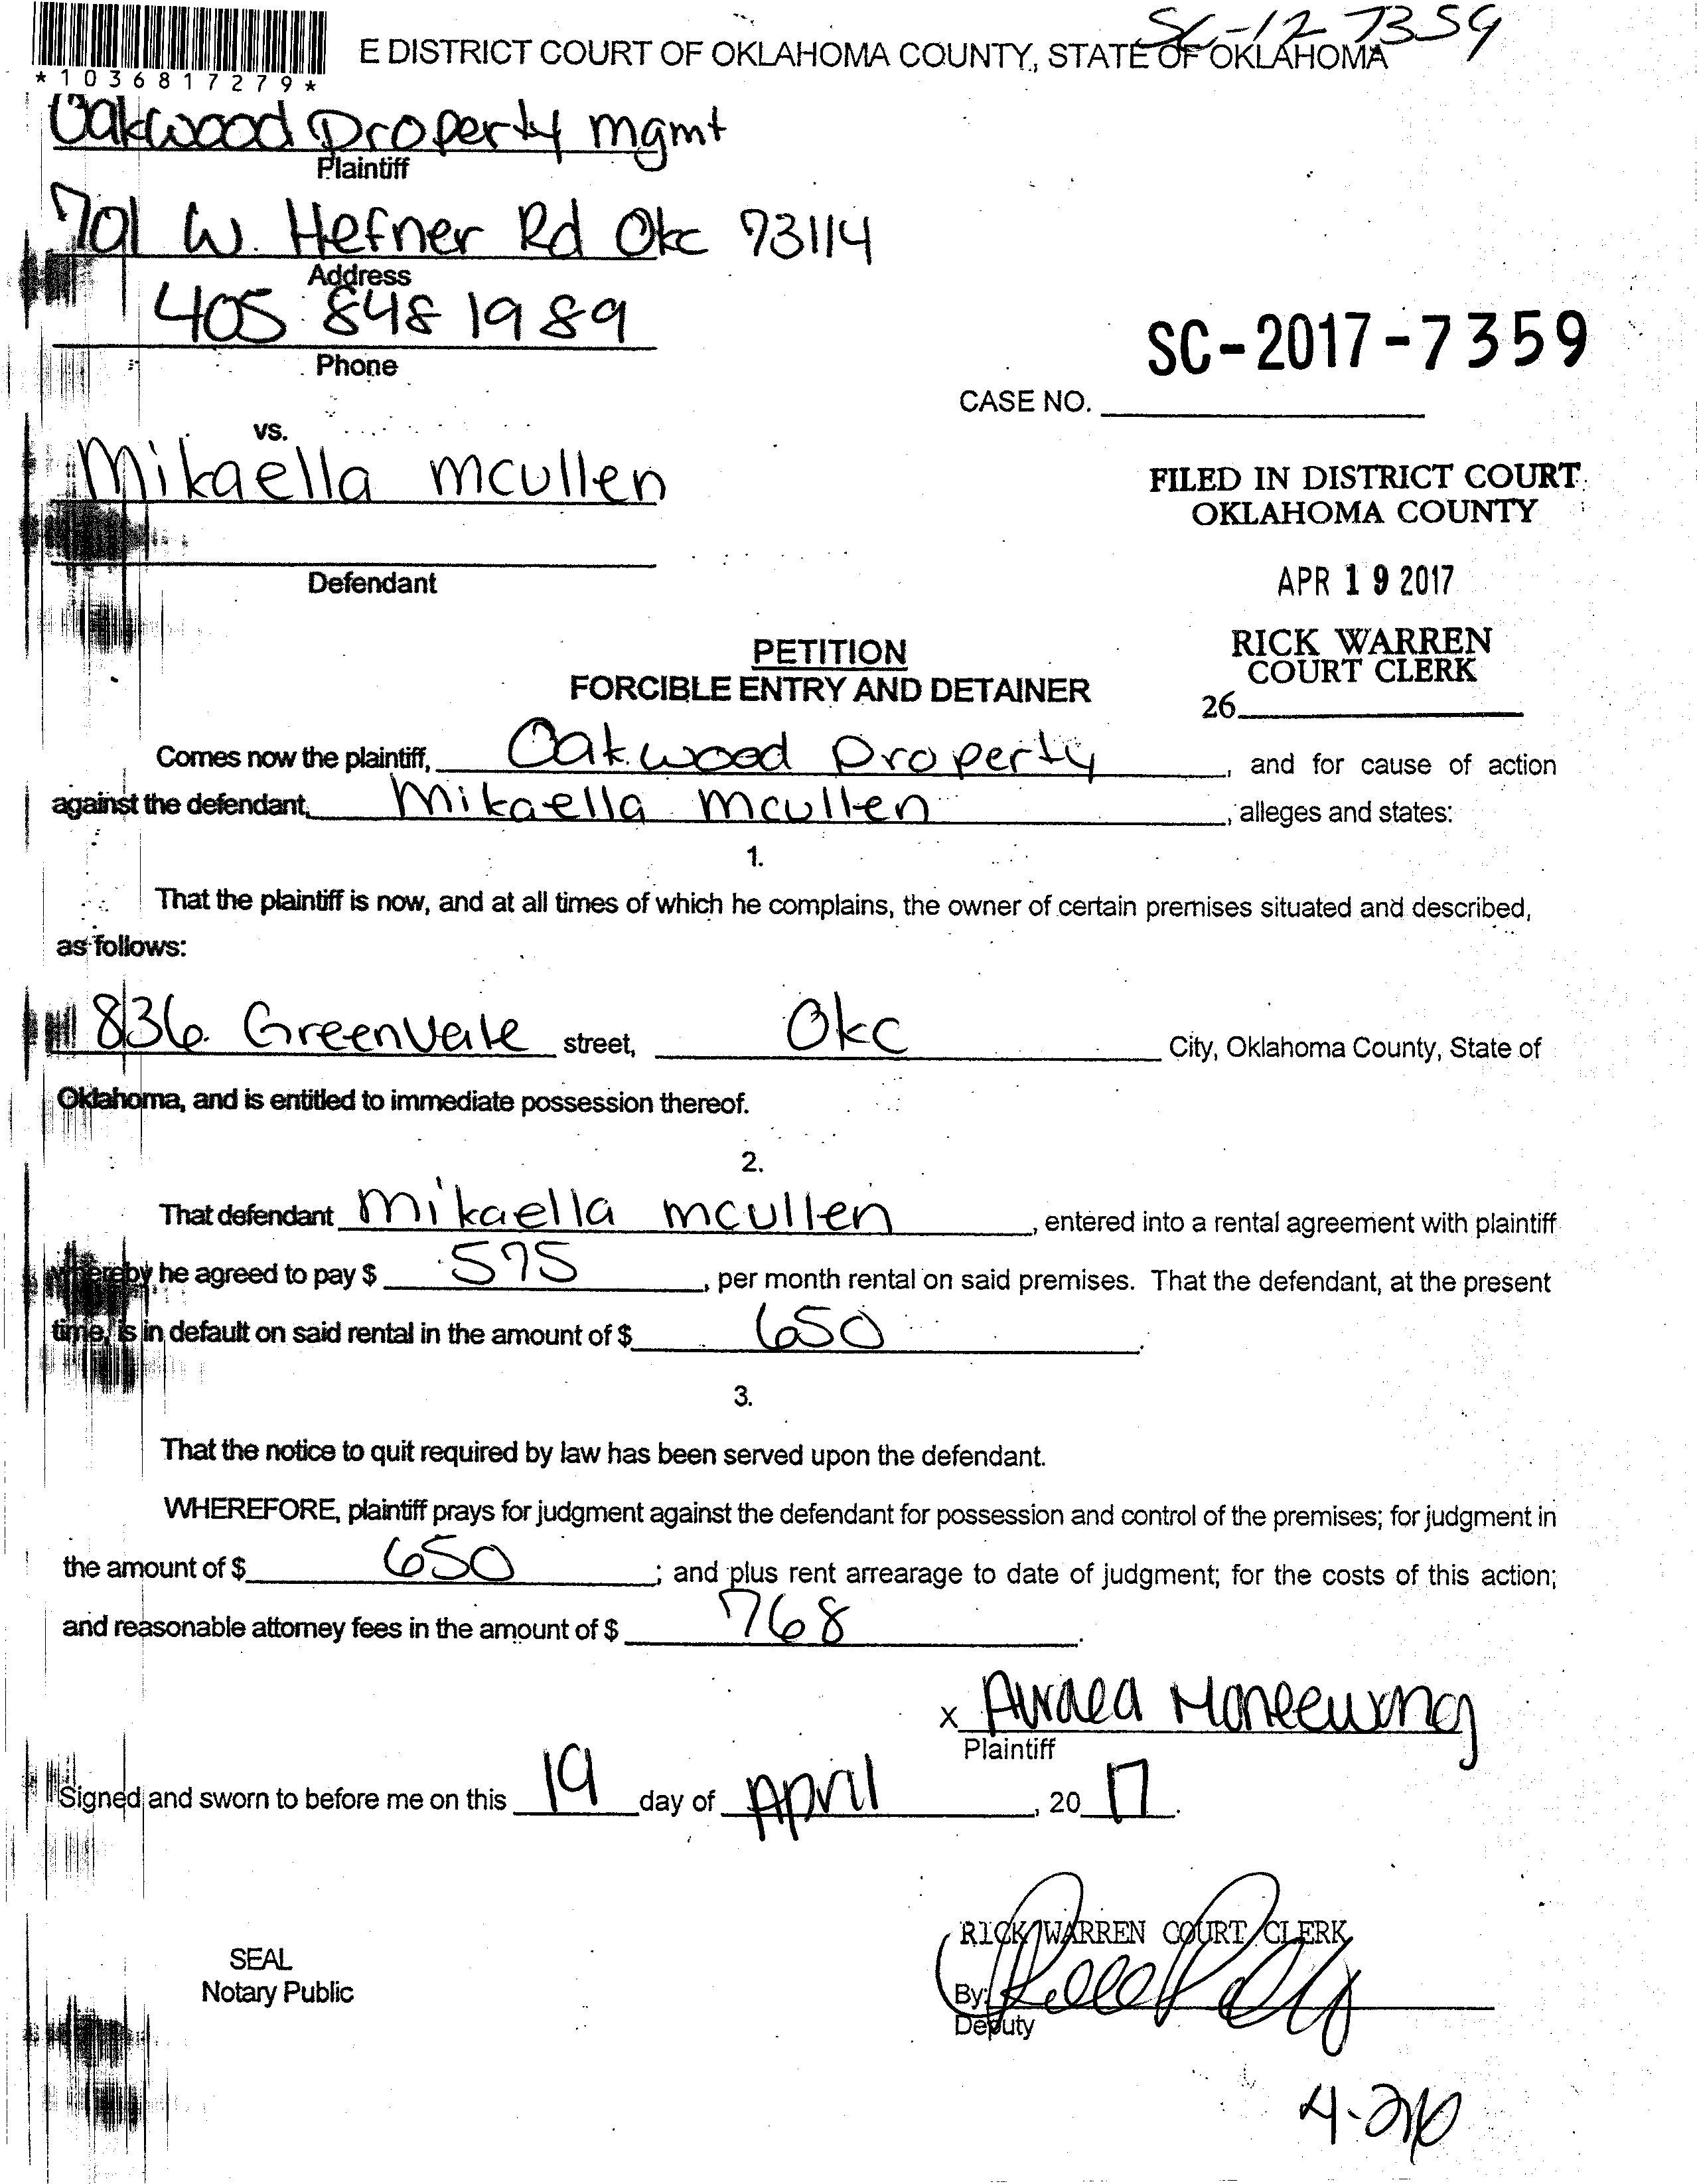 SC-17-7359
E DISTRICT COURT OF OKLAHOMA COUNTY, STATE OF OKLAHOMA
*1036817279*
Oakwood Property mgmt
Plaintiff
701 W. Hefner Rd Okc 73114
Address
405 848 1989
Phone
SC-2017-7359
CASE NO.
vs.
Mikaella mcullen
FILED IN DISTRICT COURT
OKLAHOMA COUNTY
Defendant
APR 19 2017
RICK WARREN
COURT CLERK
26
PETITION
FORCIBLE ENTRY AND DETAINER
Comes now the plaintiff, Oakwood Property, and for cause of action
against the defendant, Mikaella mcullen, alleges and states:
1.
That the plaintiff is now, and at all times of which he complains, the owner of certain premises situated and described,
as follows:
836 Greenvale street, Okc City, Oklahoma County, State of
Oklahoma, and is entitled to immediate possession thereof.
2.
That defendant Mikaella mcullen, entered into a rental agreement with plaintiff
whereby he agreed to pay $ 575, per month rental on said premises. That the defendant, at the present
time, is in default on said rental in the amount of $ 650.
3.
That the notice to quit required by law has been served upon the defendant.
WHEREFORE, plaintiff prays for judgment against the defendant for possession and control of the premises; for judgment in
the amount of $ 650; and plus rent arrearage to date of judgment; for the costs of this action;
and reasonable attorney fees in the amount of $ 768.
x
Plaintiff
Signed and sworn to before me on this 19 day of April, 20 17.
RICK WARREN COURT CLERK
SEAL
Notary Public
By:
Deputy